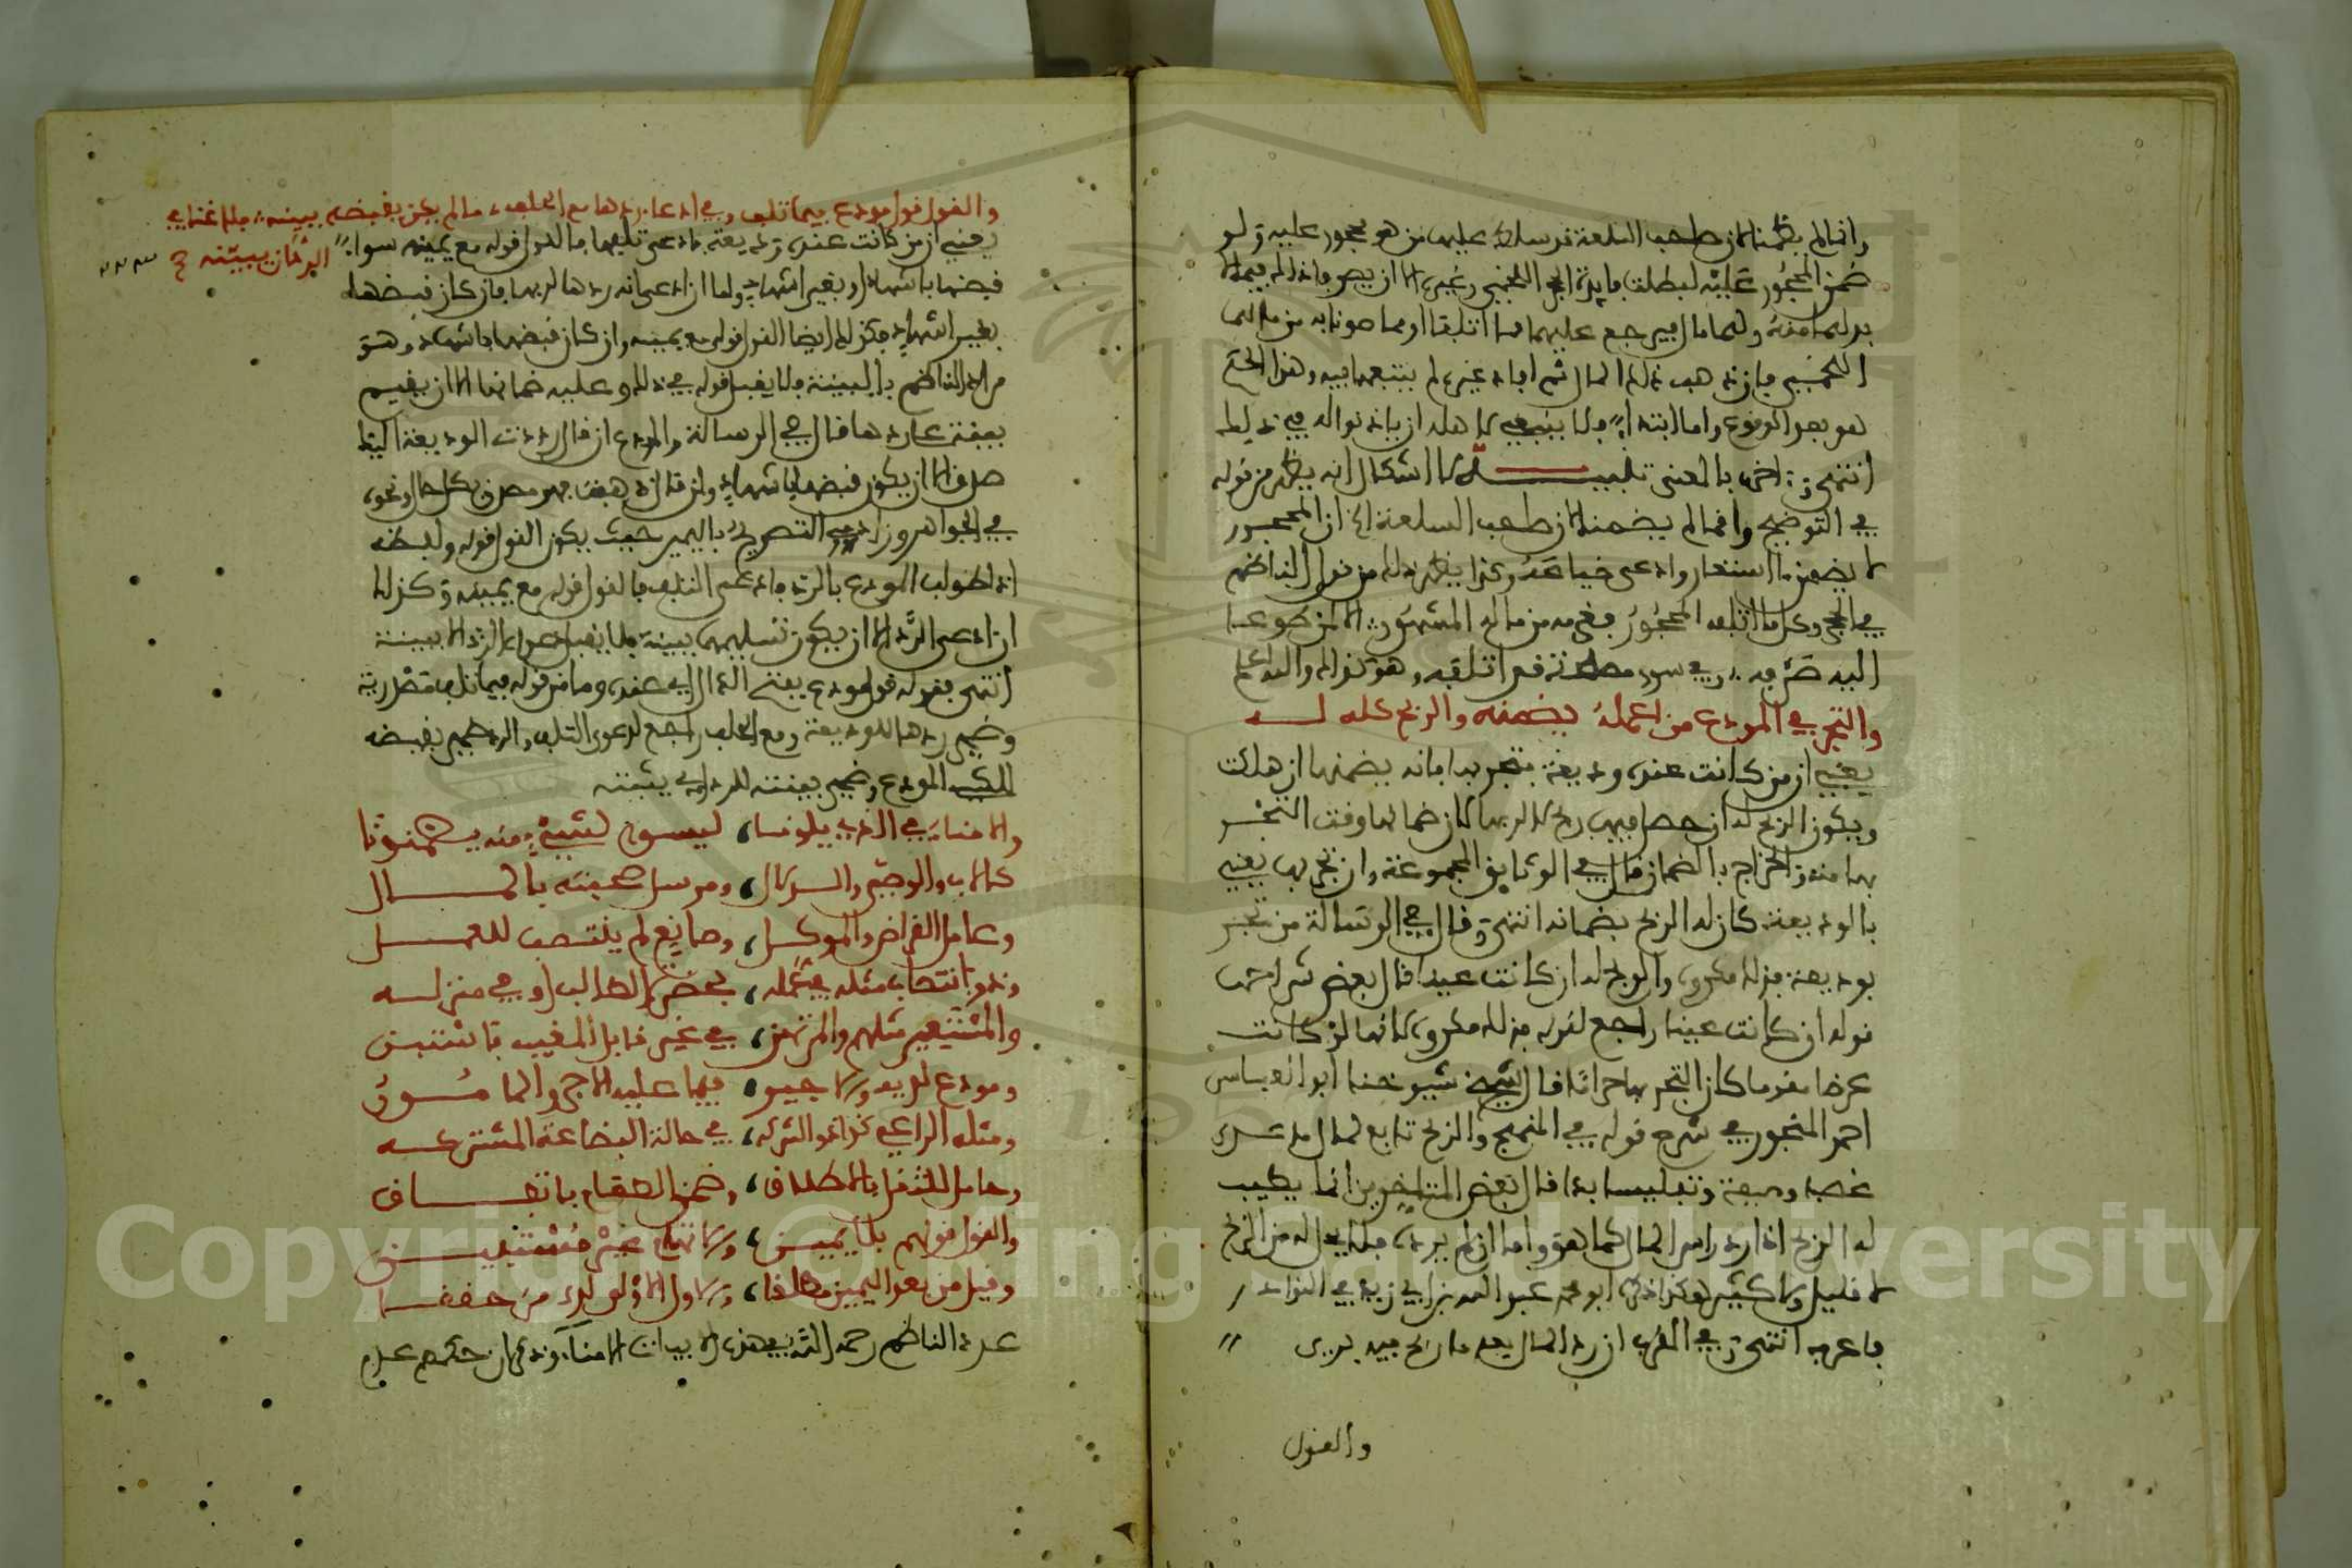 وانما لم يضمنا لان صاحب السلعة قد سلط عليها من هو محجور عليه ولو
ضمن المحجور عليه لبطلت فايدة الحجر اللخمي وغيره الا ان يصرفا ذلك فيما لا
بد لهما منه ولهما مال فيرجع عليهما فيما اتلفا او مما صونا به من مالهما
اللخمي فان ذهب ذلك المال ثم افاد غيره لم يتبعهما فيه وهذا الحكم
هو بعد الوقوع واما ابتداء فلا ينبغي لاهله ان ياذنوا له في ذلك
انتهى باختصار بالمعنى تنبيه لا اشكال انه يظهر من قوله
في التوضيح وانما لم يضمنا لان صاحب السلعة الخ ان المحجور
لا يضمن ما استعار وادعى ضياعه وكذا يظهر ذلك من قول الناظم
في الحجر وكل ما اتلفه المحجور فغرمه من ماله المشهور الا لمن طوعا
اليه صرفه وفي سوى مصلحة قد اتلفه وهو كذلك والله اعلم
والتجر في المودع من اعمله يضمنه والربح كله له
يعني ان من كانت عنده وديعة فتجر بها فانه يضمنها ان هلكت
ويكون الربح له ان حصل فيها ربح لا لربها لان ضمانها وقت التجر
بها منه والخراج بالضمان قال في الوثايق المجموعة وان تجر بها يعني
بالوديعة كان له الربح بضمانه انتهى وقال في الرسالة من تجر
بوديعة فذلك مكروه والربح له ان كانت عينا قال بعض شراحها
قوله ان كانت عينا راجع لقوله فذلك مكروه لانها لو كانت
عرضا مقوما كان التجر بها حراما قال شيخ شيوخنا ابو العباس
احمد المنجور في شرح قوله في المنهج والربح تابع لمال ما عدى
غصبا وديعة وتفليسا بدا قال بعض المتاخرين انما يطيب
له الربح اذا رد راس المال كما هو واما ان لم يرده فلا يحل له من الربح
لا قليل ولا كثير هكذا ذكره ابو محمد عبد الله بن ابي زيد في النوادر
فاعرفه انتهى وفي المقرب ان رد المال بعد ما ربح فيه بريى
والقول
والقول قول مودع فيما تلف وفي ادعاء ردها مع الحلف ما لم يكن بقبضه ببينه فلا غنا في
الرد ان يبينه ح
يعني ان من كانت عنده وديعة فادعى تلفها فالقول قوله مع يمينه سواء
قبضها باشهاد او بغير اشهاد واما ان ادعى انه ردها لربها فان كان قبضها
بغير اشهاد فكذلك ايضا القول قوله مع يمينه وان كان قبضها باشهاد وهو
مراد الناظم بالبينة فلا يقبل قوله في ذلك وعليه ضمانها الا ان يقيم
بينة على ردها قال في الرسالة والمودع ان قال رددت الوديعة اليك
صدق الا ان يكون قبضها باشهاد وان قال ذهبت فهو مصدق بكل حال ونحوه
في الجواهر وزاد التصريح باليمين حيث يكون القول قوله ولفظه
اذا طولب المودع بالرد فادعى التلف فالقول قوله مع يمينه وكذلك
ان ادعى الرد الا ان يكون تسليمها ببينة فلا يقبل دعواه الرد الا ببينة
انتهى فقوله قول مودع بفتح الدال اي عنده وما من قوله فيما تلف مصدرية
وضمير ردها للوديعة ومع الحلف راجع لدعوى التلف والرد ضمير بقبضه
المودع وضمير بينته للرد اي يثبته
والامناء في الذي يلونا ليسوا لشيء منه يضمنونا
كالاب والوصي والدلال ومرسل صحبته بالمال
وعامل القراض والموكل وصانع لم ينتصب للعمل
وذو انتصاب مثله في عمله بحضرة الطالب او في منزله
والمستعير مثلهم والمرتهن في غير قابل المغيب فاستبن
ومودع لديه والاجير فيما عليه الاجر والمامور
ومثله الراعي كذا ذو الشركه في حالة البضاعة المشتركه
وحامل للثقل بالاطلاق وضمن الطعام باتفاق
والقول قولهم بلا يمين والاتهام غير مستبين
وقيل من بعد اليمين مطلقا والاول الاولى لدى من حققا
عدد الناظم رحمه الله في هذه الابيات الامناء وذكر ان حكمهم عدم